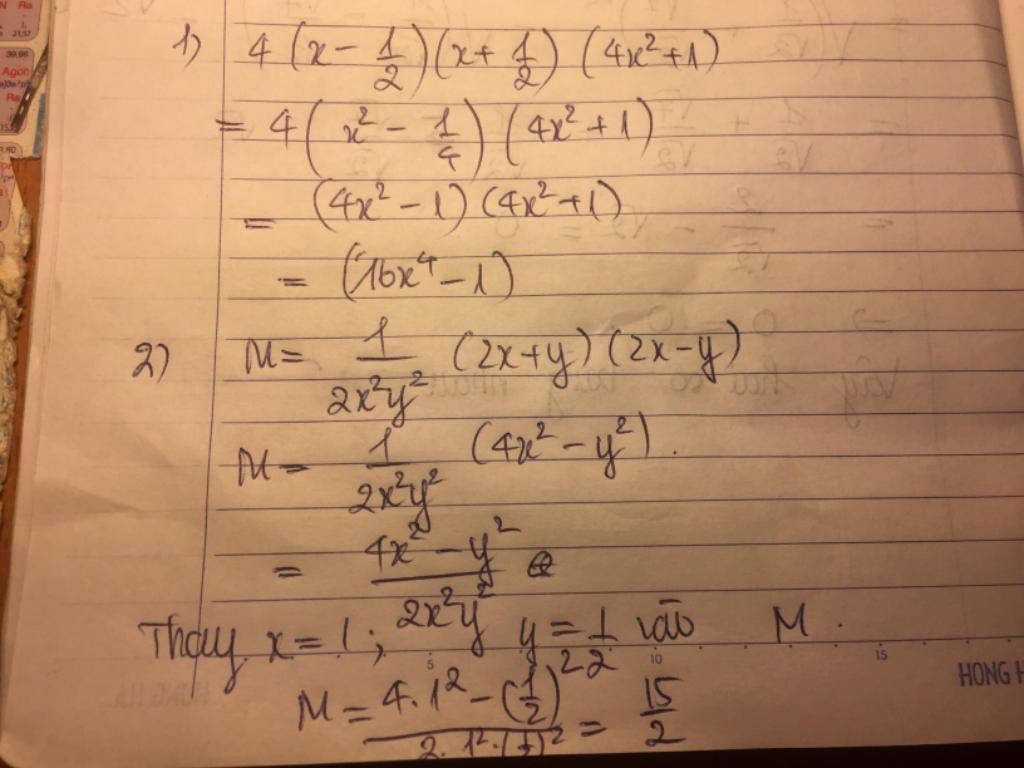 1) 4 (x - 1/2)(x + 1/2) (4x² + 1)
= 4(x² - 1/4) (4x² + 1)
= (4x² - 1) (4x² + 1)
= (16x⁴ - 1)
2) M = 1/2x²y² (2x + y) (2x - y)
M = 1/2x²y² (4x² - y²).
= 4x² - y²/2x²y²
Thay x = 1; y = 1/2 vào M.
5 10 15
HONG H
M = 4.1² - (1/2)²/2.1².(1/2)² = 15/2
39,95
Agon
Ra